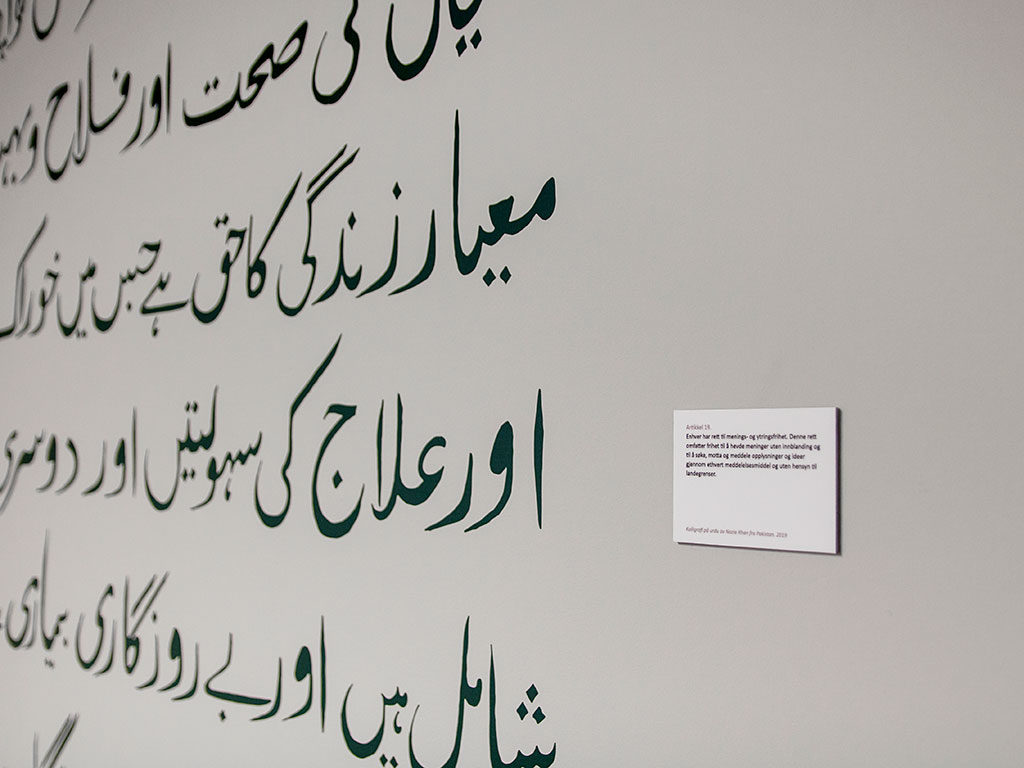 کی صحت اور فلاح و
معیار زندگی کا حق ہے جس میں خوراک
اور علاج کی سہولتیں اور دوسری
شامل ہیں اور بے روزگاری بیماری
Artikkel 19.
Enhver har rett til menings- og ytringsfrihet. Denne rett
omfatter frihet til å hevde meninger uten innblanding og
til å søke, motta og meddele opplysninger og ideer
gjennom ethvert meddelelsesmiddel og uten hensyn til
landegrenser.
Kalligrafi på urdu av Nazie Kher fra Pakistan. 2019